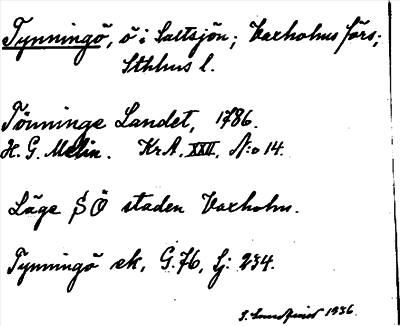 Tynningö, ö i Saltsjön; Vaxholms förs;
Sthlms l.
Tönninge Landet, 1786.
H. G. Melin. Kr.A. XXII, N:o 14.
Läge SÖ staden Vaxholm.
Tynningö ek, G.76, Sj: 234.
1936.